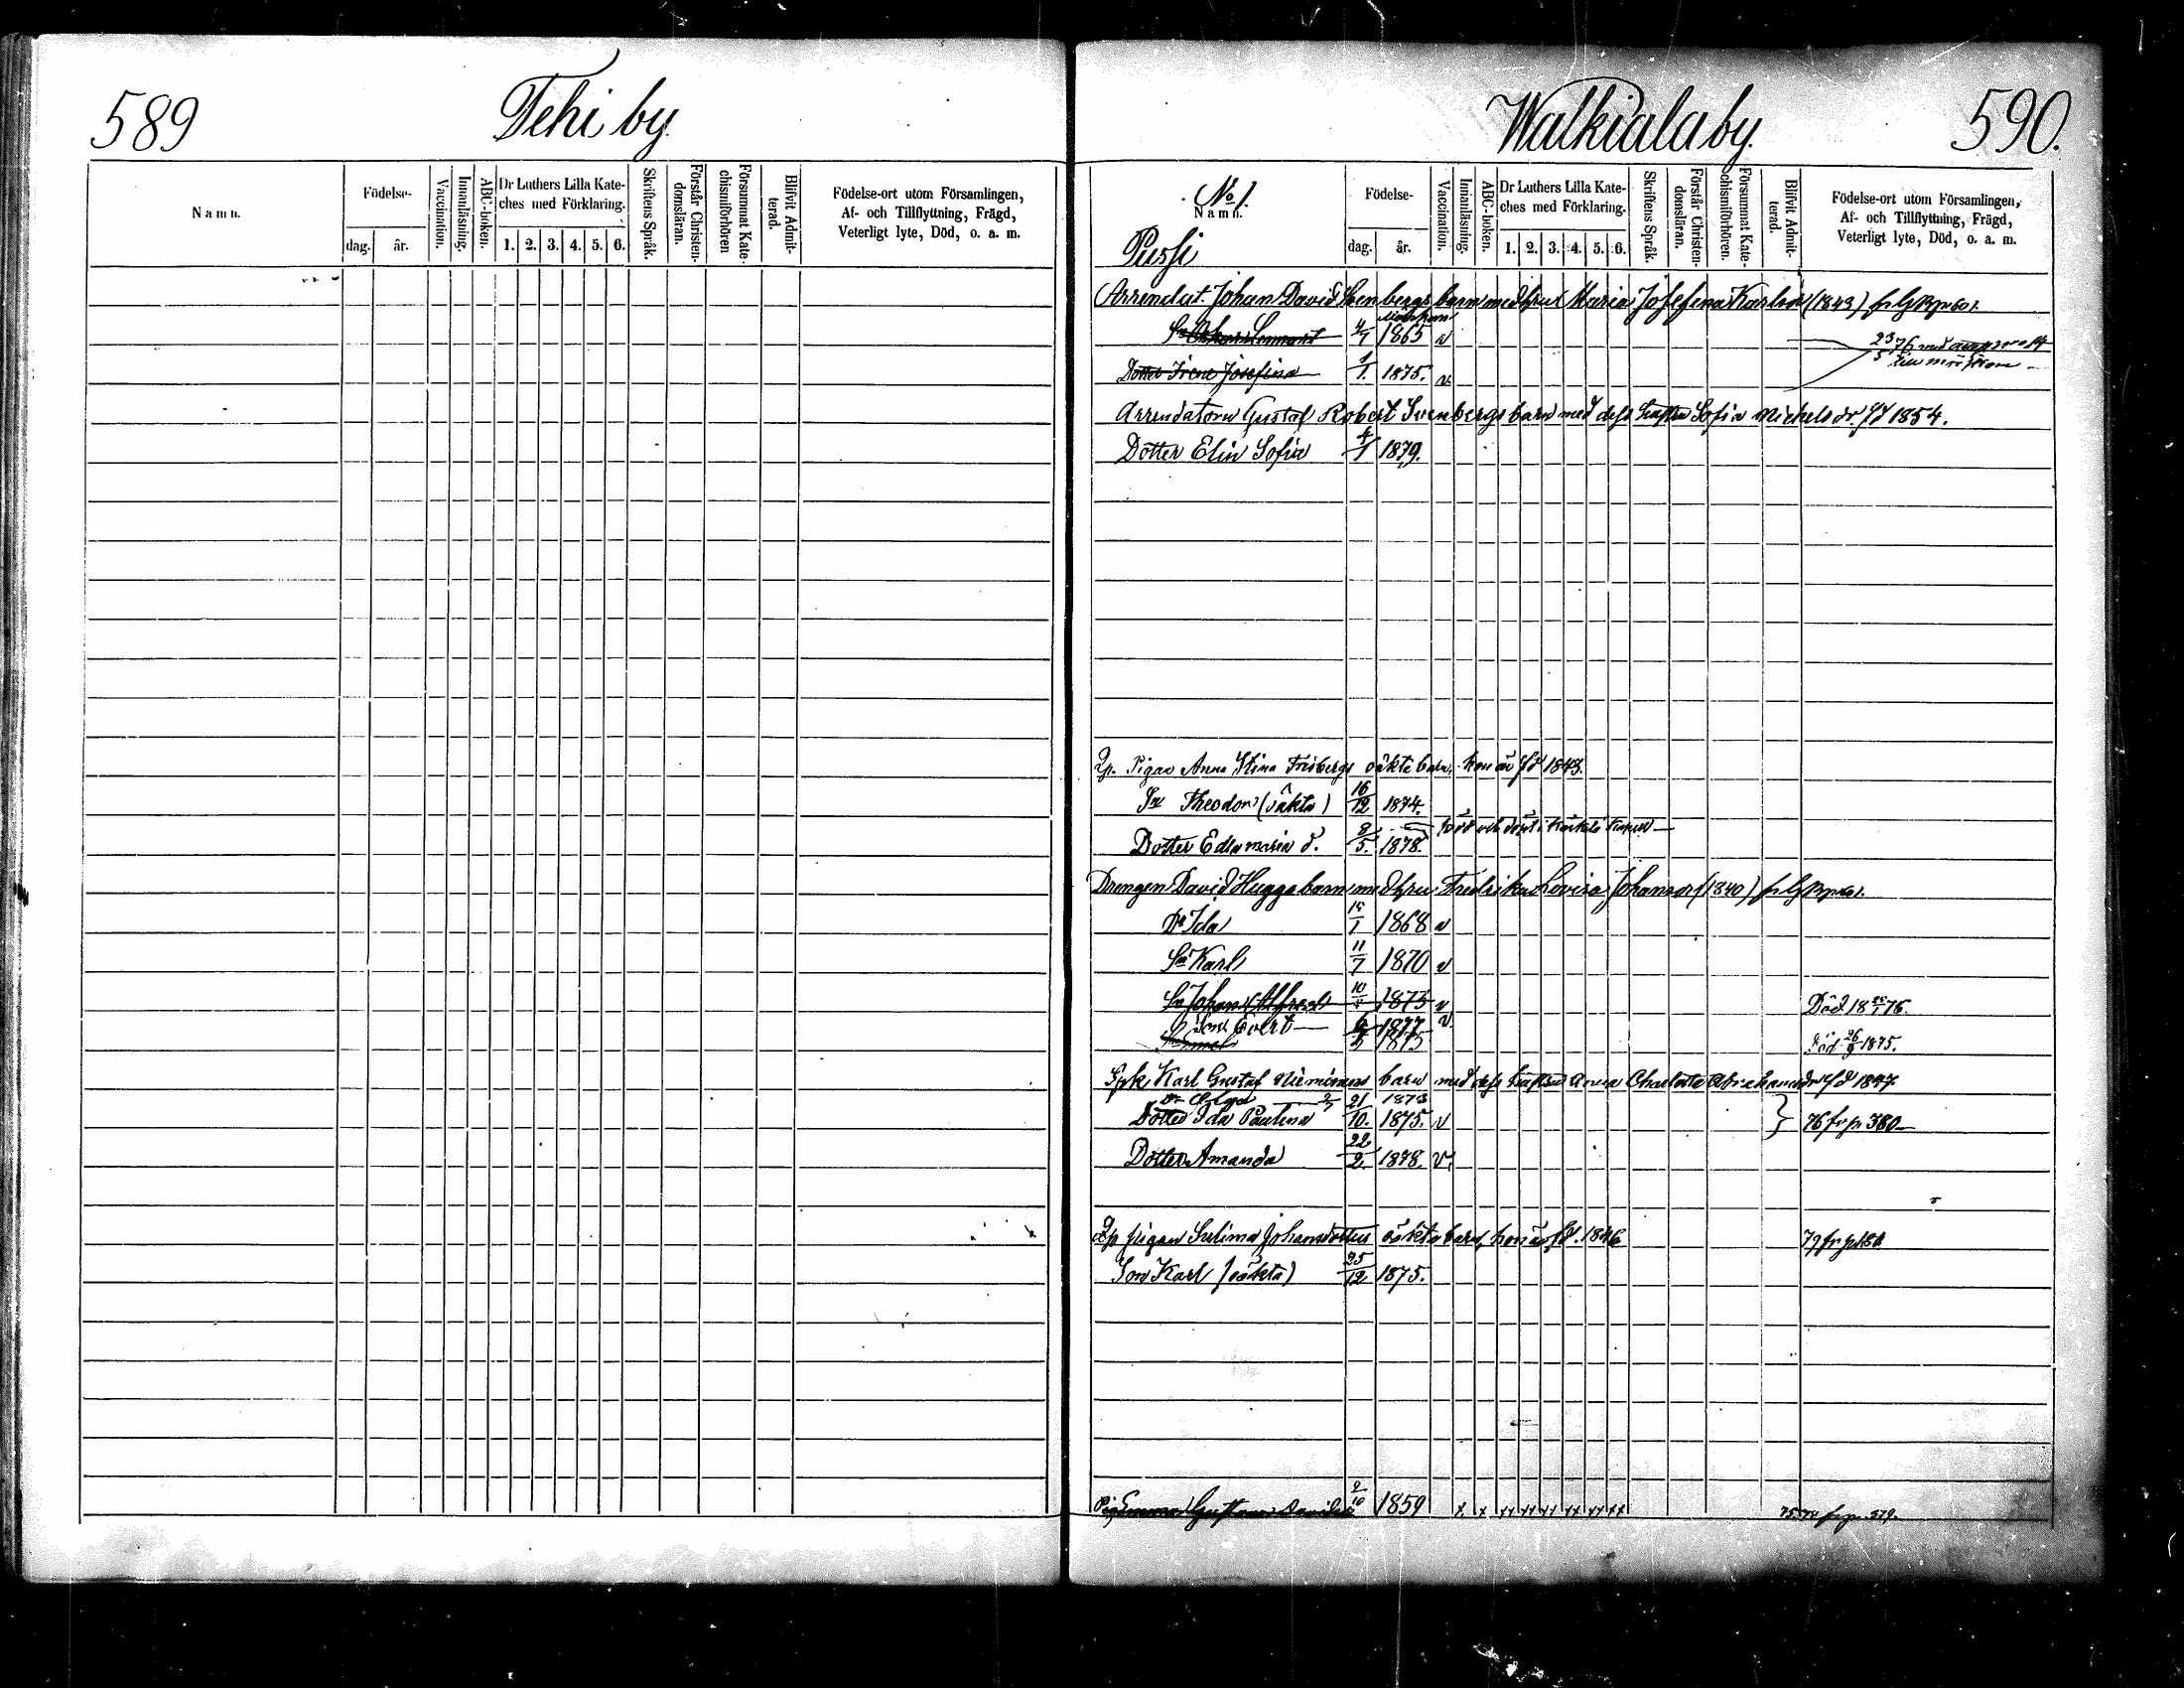 589
Tehi by
Namn.
Födelse-
dag. år.
Vaccination.
Innanläsning.
ABC-boken.
Dr Luthers Lilla Kate-
ches med Förklaring.
1. 2. 3. 4. 5. 6.
Skriftens Språk.
Förstår Christen-
domsläran.
Försummat Kate-
chismiförhören
Blifvit Admit-
terad.
Födelse-ort utom Församlingen,
Af- och Tillflyttning, Frägd,
Veterligt lyte, Död, o. a. m.
Walkiala by.
590.
No 1.
Namn.
Pussi
Födelse-
dag. år.
Vaccination.
Innanläsning.
ABC-boken.
Dr Luthers Lilla Kate-
ches med Förklaring.
1. 2. 3. 4. 5. 6.
Skriftens Språk.
Förstår Christen-
domsläran.
Försummat Kate-
chismiförhören.
Blifvit Admit-
terad.
Födelse-ort utom Församlingen,
Af- och Tillflyttning, Frägd,
Veterligt lyte, Död, o. a. m.
Arrendat. Johan David Stenbergs barn med hru Maria Josefina Karlsdr (1843)
Sn Lennart 4/7 1865 v
23/5 76
Dotter Irene Josefina 1/1. 1875. v.
Arrendatorn Gustaf Robert Svenbergs barn med dess hustru Sofia Michelsdr. fd 1854.
Dotter Elin Sofia 4/1 1879.
Pigan Anna Stina Frisbergs oäkta barn, hon är fd 1843.
Sn Theodor (oäkta) 16/12 1874.
Dotter Edla Maria d. 8/5. 1878.
Drengen David Huggs barn med hru Fredrika Lovisa Johansdr (1840)
Dr Ida 15/1 1868 v
Sn Karl 11/7 1870 v
Sn Johan Alfred 10 1873 v Död 18 76.
Son Evert 6 1877 v.
Sn Emel 1875 Död 26/9 1875.
Karl Gustaf Niemis barn med dess hustru Anna Charlotta Abrahamsdr fd 1847
Dr Olga 2/7 1873
Dotter Ida Paulina 21/10. 1875. v } 76 fr p 380
Dotter Amanda 22/2. 1878. v.
pigan Selima Johansdotters oäkta barn, hon är fd. 1846
Son Karl (oäkta) 25/12 1875.
Pig Emma Gustava Davidsdr 2/10 1859 x x xx xx xx xx xx xx fr p. 579.